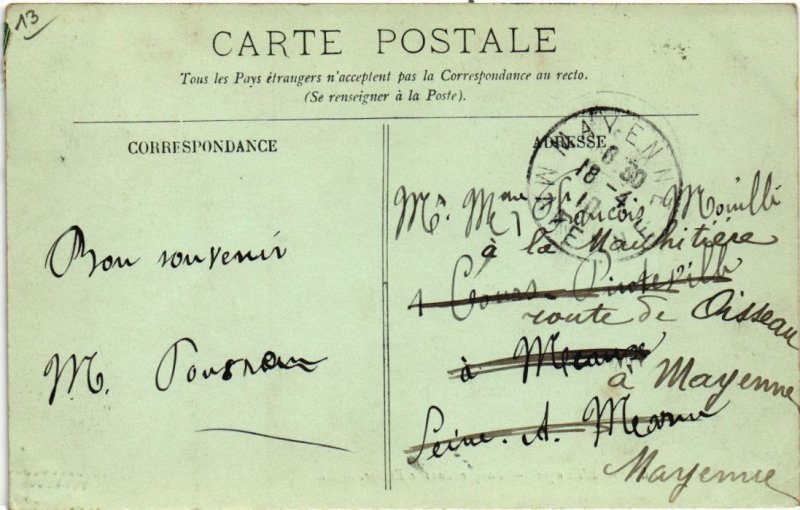 13
CARTE POSTALE
Tous les Pays étrangers n'acceptent pas la Correspondance au recto.
(Se renseigner à la Poste).
CORRESPONDANCE
Bon souvenir
M.
ADRESSE
MAYENNE
6 30
18 - 4
Mr Mme François Mouillé
à la
1 Cours
route de Oisseau
à Meaux
à Mayenne
Seine. A. Marne
Mayenne